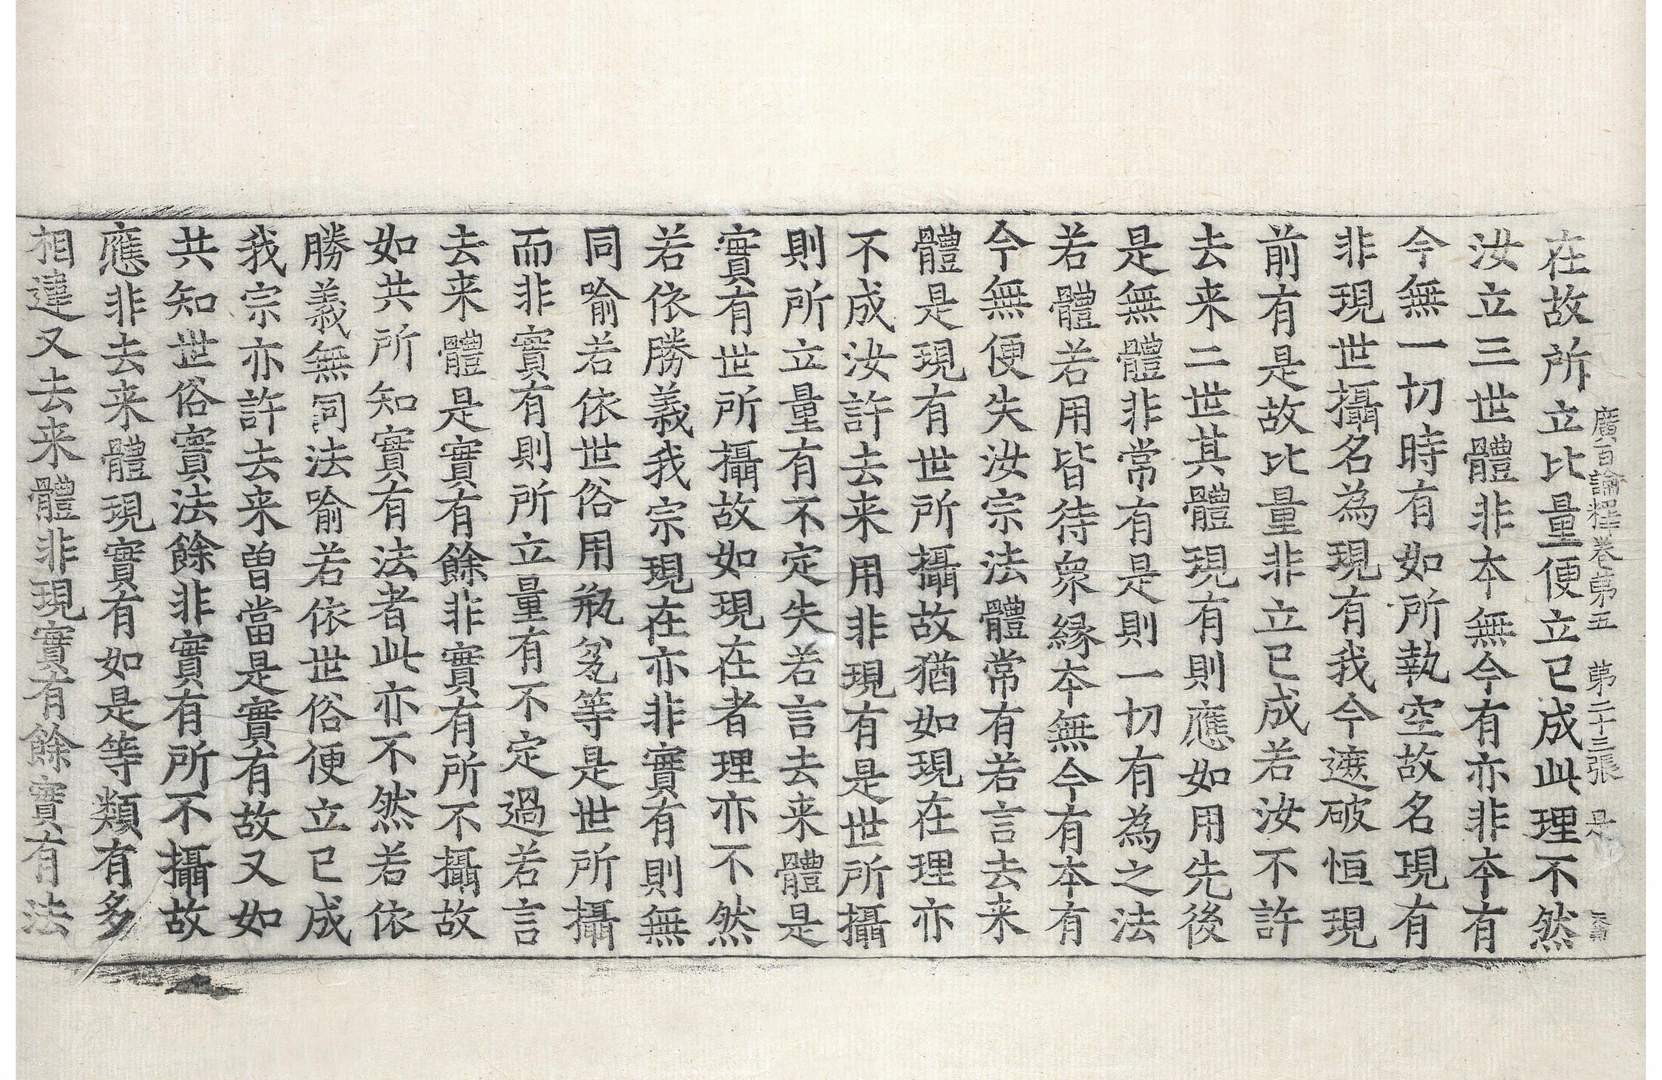 廣百論釋卷第五 第二十三張 是
在故所立比量便立已成此理不然
汝立三世體非本無今有亦非本有
今無一切時有如所執空故名現有
非現世攝名為現有我今遮破恒現
前有是故比量非立已成若汝不許
去来二世其體現有則應如用先後
是無體非常有是則一切有為之法
若體若用皆待衆緣本無今有本有
今無便失汝宗法體常有若言去来
體是現有世所攝故猶如現在理亦
不成汝許去来用非現有是世所攝
則所立量有不定失若言去来體是
實有世所攝故如現在者理亦不然
若依勝義我宗現在亦非實有則無
同喻若依世俗用瓶瓫等是世所攝
而非實有則所立量有不定過若言
去来體是實有餘非實有所不攝故
如共所知實有法者此亦不然若依
勝義無同法喻若依世俗便立已成
我宗亦許去来曾當是實有故又如
共知世俗實法餘非實有所不攝故
應非去来體現實有如是等類有多
相違又去来體非現實有餘實有法